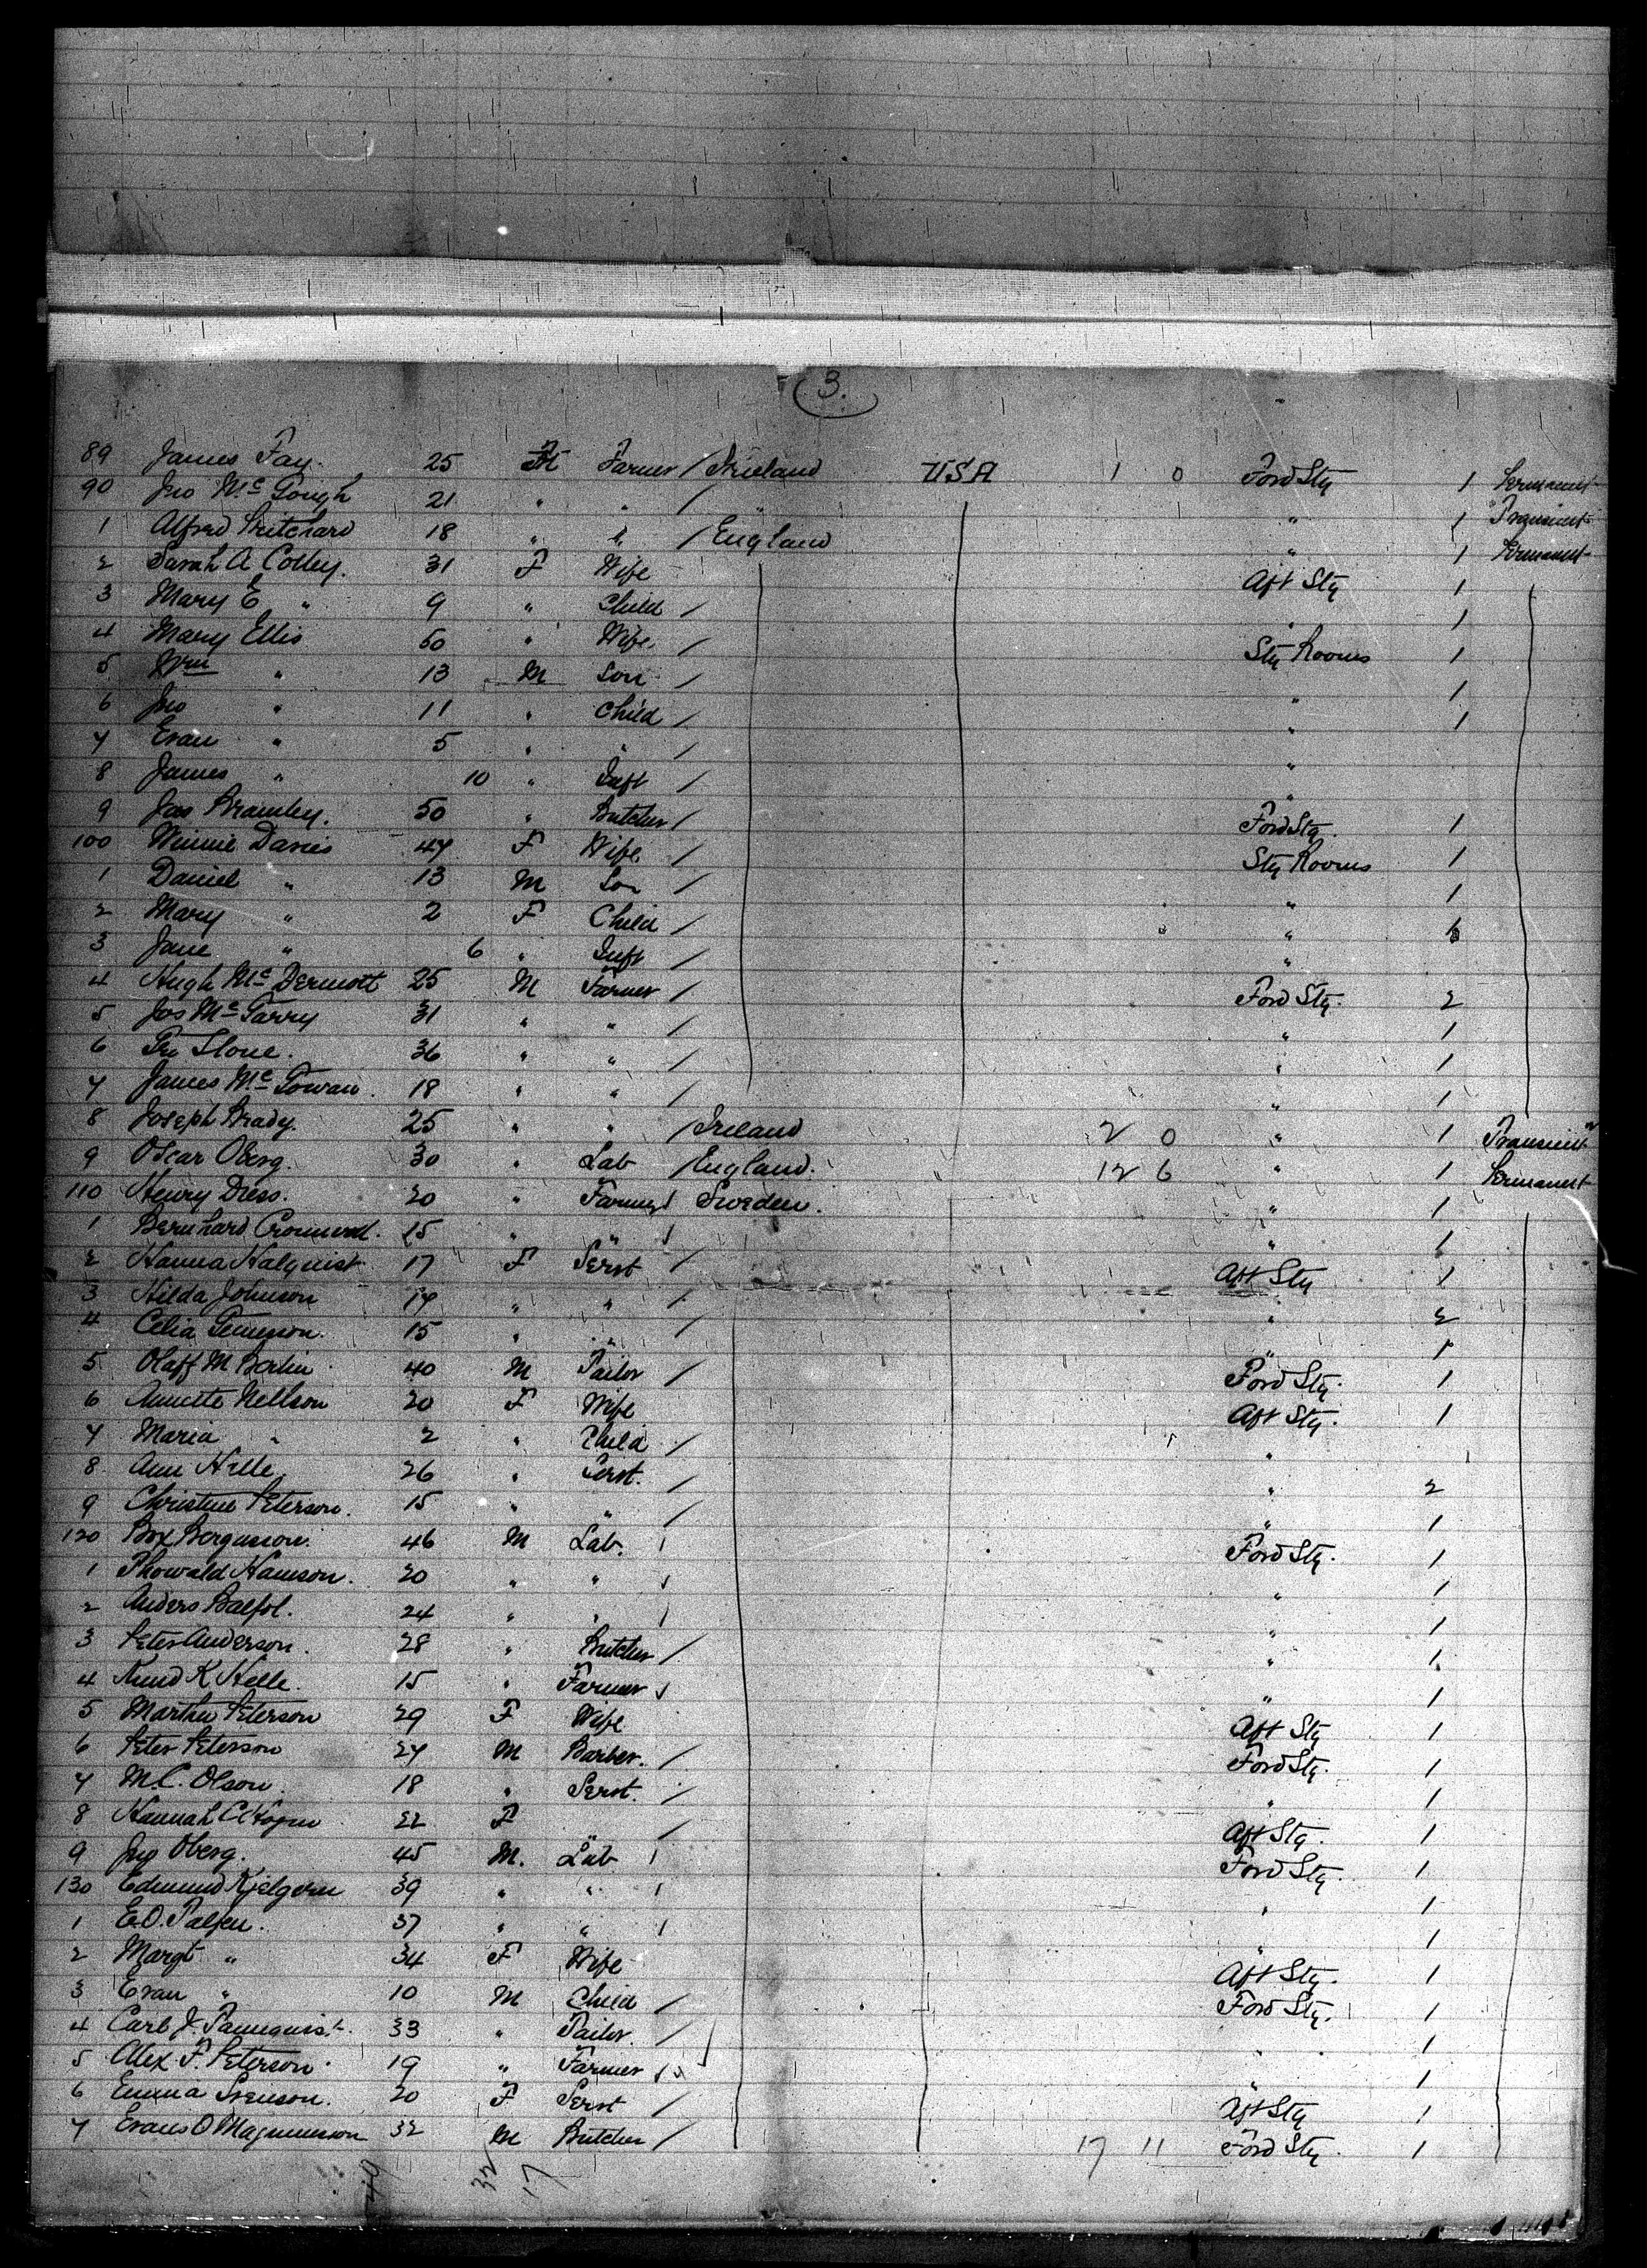 3.
89 James Fay. 25 M Farmer / Ireland USA 1 0 Ford Stg 1 Permanent
90 Jno McGough 21 " " / " 1 Transient
1 Alfred Pritchard 18 " " / England " 1 Permanent
2 Sarah A Colley. 31 F Wife Aft Stg 1
3 Mary E " 9 " Child / " 1
4 Mary Ellis 50 " Wife / Stg Rooms 1
5 Wm " 13 M Son / " 1
6 Jno " 11 " Child / " 1
7 Evan " 5 " " / "
8 James " 10 " Inft / "
9 Jas Bramley. 50 " Butcher / Ford Stg. 1
100 Winnie Davies 47 F Wife / Stg Rooms 1
1 Daniel " 13 M Son / " 1
2 Mary " 2 F Child / "
3 Jane " 6 " Inft / "
4 Hugh McDermott 25 M Farmer / Ford Stg. 2
5 Jos McGarry 31 " " / " 1
6 Slone. 36 " " / " 1
7 James McGowan. 18 " " / " 1
8 Joseph Brady. 25 " " / Ireland 2 0 " 1 Transient
9 Oscar Oberg. 30 " Lab / England. 12 6 " 1 Permanent
110 Henry Dress. 20 " Farmer / Sweden. " 1
1 Bernhard 15 " " / " 1
2 Hanna Halquist 17 F Servt / Aft Stg 1
3 Hilda Johnson 19 " " / " 2
4 Celia 15 " " / " 1
5 Olaff M Borlin 40 M Tailor / Ford Stg. 1
6 Annette Nellson 20 F Wife Aft Stg. 1
7 Maria " 2 " Child / "
8 Ann Helle 26 " Servt. / " 2
9 Christine Peterson. 15 " " / " 1
120 Bergusson. 46 M Lab. / Ford Stg. 1
1 Thowald Hanson. 20 " " / " 1
2 Anders 24 " " / " 1
3 Peter Anderson. 28 " Butcher / " 1
4 Knud K Helle. 15 " Farmer / " 1
5 Martha Peterson 29 F Wife Aft Stg 1
6 Peter Peterson 27 M Barber. / Ford Stg. 1
7 M.C. Olson 18 " Servt. / " 1
8 Hannah 22 F / Aft Stg. 1
9 Oberg. 45 M. Lab / Ford Stg. 1
130 Edmund 39 " " / " 1
1 E.O. 37 " " / " 1
2 Margt " 34 F Wife Aft Stg. 1
3 Evan " 10 M Child / Ford Stg. 1
4 Carl J. 33 " Tailor / " 1
5 Alex F. Peterson. 19 " Farmer / " 1
6 Emma Svenson. 20 F Servt / Aft Stg 1
7 Evans O Magnusson 32 M Butcher / 17 11 Ford Stg. 1
32 17